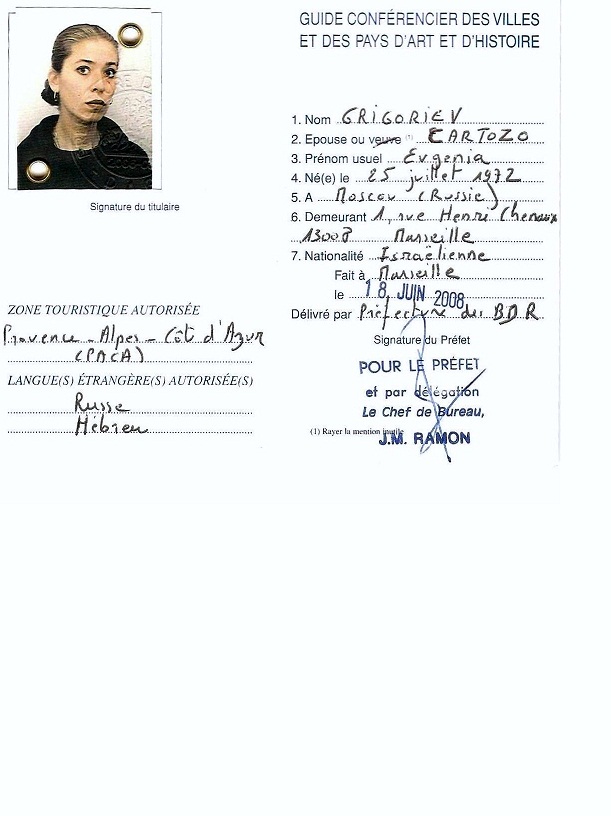 GUIDE CONFÉRENCIER DES VILLES
ET DES PAYS D'ART ET D'HISTOIRE
1. Nom GRIGORIEV
2. Epouse ou veuve (1) CARTOZO
3. Prénom usuel Evgenia
4. Né(e) le 25 juillet 1972
5. A Moscou (Russie)
6. Demeurant 1, rue Henri
13008 Marseille
7. Nationalité Israëlienne
Fait à Marseille
le 18 JUIN 2008
Délivré par Préfecture des BDR
Signature du Préfet
POUR LE PRÉFET
et par délégation
Le Chef de Bureau,
(1) Rayer la mention inutile
J.M. RAMON
Signature du titulaire
ZONE TOURISTIQUE AUTORISÉE
Provence - Alpes - Côt d'Azur
(PACA)
LANGUE(S) ÉTRANGÈRE(S) AUTORISÉE(S)
Russe
Hébreu